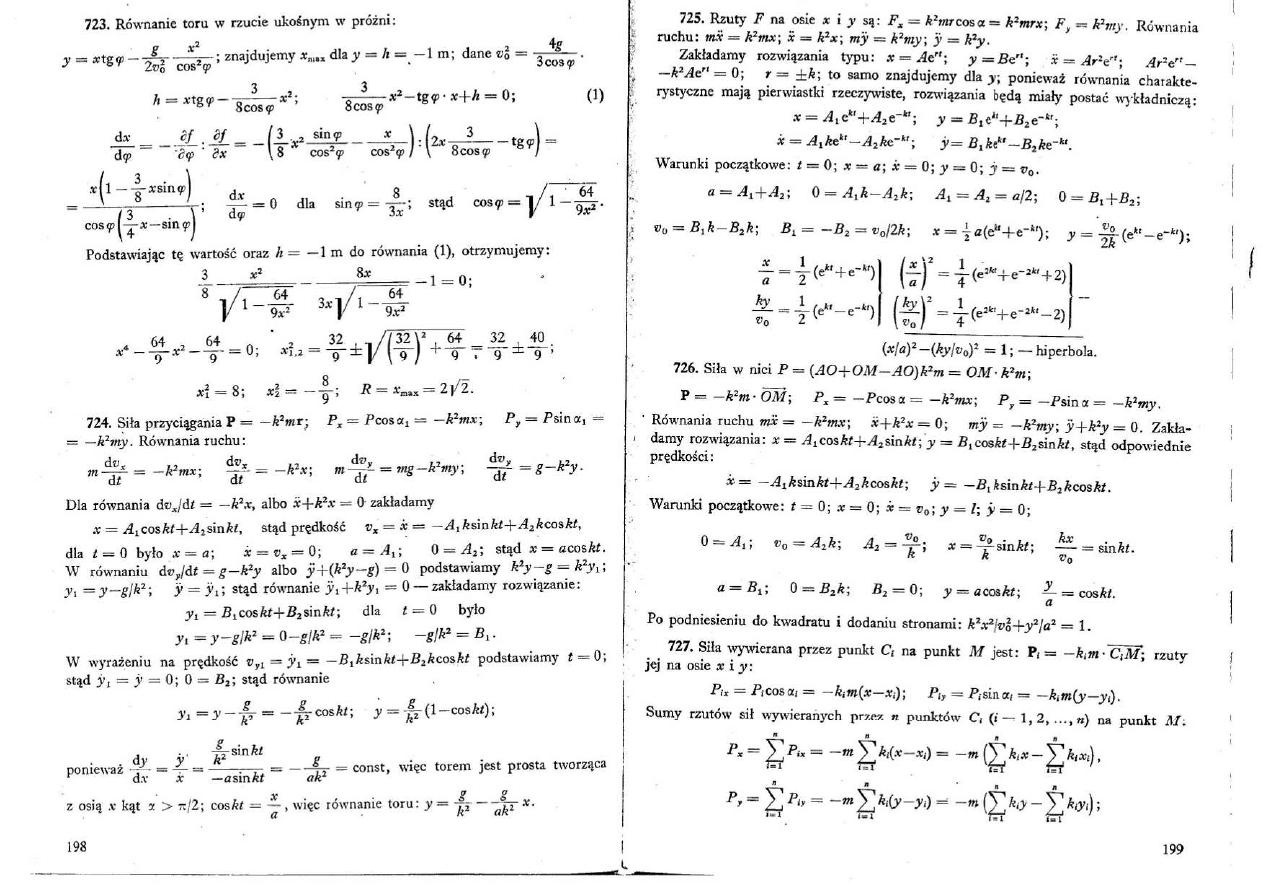 723. Równanie toru w rzucie ukośnym w próżni:
y = xtgφ − g/2v₀² · x²/cos²φ ; znajdujemy xₘₐₓ dla y = h = −1 m; dane v₀² = 4g/3cosφ .
h = xtgφ − 3/8cosφ x²; 3/8cosφ x²−tgφ · x+h = 0; (1)
dx/dφ = − ∂f/∂φ : ∂f/∂x = −(3/8 x² sinφ/cos²φ − x/cos²φ) : (2x 3/8cosφ −tgφ) =
= x(1 − 3/8 xsinφ) / cosφ(3/4 x−sinφ) ; dx/dφ = 0 dla sinφ = 8/3x ; stąd cosφ = √(1 − 64/9x²) .
Podstawiając tę wartość oraz h = −1 m do równania (1), otrzymujemy:
3/8 x²/√(1 − 64/9x²) − 8x/3x√(1 − 64/9x²) −1 = 0;
x⁴ − 64/9 x² − 64/9 = 0; x²₁,₂ = 32/9 ± √((32/9)² + 64/9) = 32/9 ± 40/9 ;
x₁² = 8; x₂² = − 8/9 ; R = xₘₐₓ = 2√2.
724. Siła przyciągania P = −k²mr; Pₓ = Pcosα₁ = −k²mx; P_y = Psinα₁ =
= −k²my. Równania ruchu:
m dvₓ/dt = −k²mx; dvₓ/dt = −k²x; m dv_y/dt = mg−k²my; dv_y/dt = g−k²y.
Dla równania dvₓ/dt = −k²x, albo ẍ+k²x = 0 zakładamy
x = A₁coskt+A₂sinkt, stąd prędkość vₓ = ẋ = −A₁ksinkt+A₂kcoskt,
dla t = 0 było x = a; ẋ = vₓ = 0; a = A₁; 0 = A₂; stąd x = acoskt.
W równaniu dv_y/dt = g−k²y albo ÿ+(k²y−g) = 0 podstawiamy k²y−g = k²y₁;
y₁ = y−g/k²; ÿ = ÿ₁; stąd równanie ÿ₁+k²y₁ = 0 — zakładamy rozwiązanie:
y₁ = B₁coskt+B₂sinkt; dla t = 0 było
y₁ = y−g/k² = 0−g/k² = −g/k²; −g/k² = B₁.
W wyrażeniu na prędkość v_y₁ = ẏ₁ = −B₁ksinkt+B₂kcoskt podstawiamy t = 0;
stąd ẏ₁ = ẏ = 0; 0 = B₂; stąd równanie
y₁ = y − g/k² = − g/k² coskt; y = g/k² (1−coskt);
ponieważ dy/dx = ẏ/ẋ = g/k² sinkt / −asinkt = − g/ak² = const, więc torem jest prosta tworząca
z osią x kąt α > π/2; coskt = x/a , więc równanie toru: y = g/k² − g/ak² x.
198
725. Rzuty F na osie x i y są: Fₓ = k²mrcosα = k²mrx; F_y = k²my. Równania
ruchu: mẍ = k²mx; ẍ = k²x; mÿ = k²my; ÿ = k²y.
Zakładamy rozwiązania typu: x = Aeʳᵗ; y = Beʳᵗ; ẍ = Ar²eʳᵗ; Ar²eʳᵗ−
−k²Aeʳᵗ = 0; r = ±k; to samo znajdujemy dla y; ponieważ równania charakte-
rystyczne mają pierwiastki rzeczywiste, rozwiązania będą miały postać wykładniczą:
x = A₁eᵏᵗ+A₂e⁻ᵏᵗ; y = B₁eᵏᵗ+B₂e⁻ᵏᵗ;
ẋ = A₁keᵏᵗ−A₂ke⁻ᵏᵗ; ẏ = B₁keᵏᵗ−B₂ke⁻ᵏᵗ.
Warunki początkowe: t = 0; x = a; ẋ = 0; y = 0; ẏ = v₀.
a = A₁+A₂; 0 = A₁k−A₂k; A₁ = A₂ = a/2; 0 = B₁+B₂;
v₀ = B₁k−B₂k; B₁ = −B₂ = v₀/2k; x = ½ a(eᵏᵗ+e⁻ᵏᵗ); y = v₀/2k (eᵏᵗ−e⁻ᵏᵗ);
x/a = 1/2 (eᵏᵗ+e⁻ᵏᵗ) | (x/a)² = 1/4 (e²ᵏᵗ+e⁻²ᵏᵗ+2)
ky/v₀ = 1/2 (eᵏᵗ−e⁻ᵏᵗ) | (ky/v₀)² = 1/4 (e²ᵏᵗ+e⁻²ᵏᵗ−2) | −
(x/a)²−(ky/v₀)² = 1; — hiperbola.
726. Siła w nici P = (AO+OM−AO)k²m = OM·k²m;
P = −k²m·OM; Pₓ = −Pcosα = −k²mx; P_y = −Psinα = −k²my.
Równania ruchu mẍ = −k²mx; ẍ+k²x = 0; mÿ = −k²my; ÿ+k²y = 0. Zakła-
damy rozwiązania: x = A₁coskt+A₂sinkt; y = B₁coskt+B₂sinkt, stąd odpowiednie
prędkości:
ẋ = −A₁ksinkt+A₂kcoskt; ẏ = −B₁ksinkt+B₂kcoskt.
Warunki początkowe: t = 0; x = 0; ẋ = v₀; y = l; ẏ = 0;
0 = A₁; v₀ = A₂k; A₂ = v₀/k; x = v₀/k sinkt; kx/v₀ = sinkt.
a = B₁; 0 = B₂k; B₂ = 0; y = acoskt; y/a = coskt.
Po podniesieniu do kwadratu i dodaniu stronami: k²x²/v₀²+y²/a² = 1.
727. Siła wywierana przez punkt Cᵢ na punkt M jest: Pᵢ = −kᵢm·CᵢM; rzuty
jej na osie x i y:
Pᵢₓ = Pᵢcosαᵢ = −kᵢm(x−xᵢ); Pᵢy = Pᵢsinαᵢ = −kᵢm(y−yᵢ).
Sumy rzutów sił wywieranych przez n punktów Cᵢ (i — 1, 2, ..., n) na punkt M:
Pₓ = ∑ⁿᵢ₌₁ Pᵢₓ = −m ∑ⁿᵢ₌₁ kᵢ(x−xᵢ) = −m (∑ⁿᵢ₌₁ kᵢx − ∑ⁿᵢ₌₁ kᵢxᵢ),
P_y = ∑ⁿᵢ₌₁ Pᵢy = −m ∑ⁿᵢ₌₁ kᵢ(y−yᵢ) = −m (∑ⁿᵢ₌₁ kᵢy − ∑ⁿᵢ₌₁ kᵢyᵢ);
199